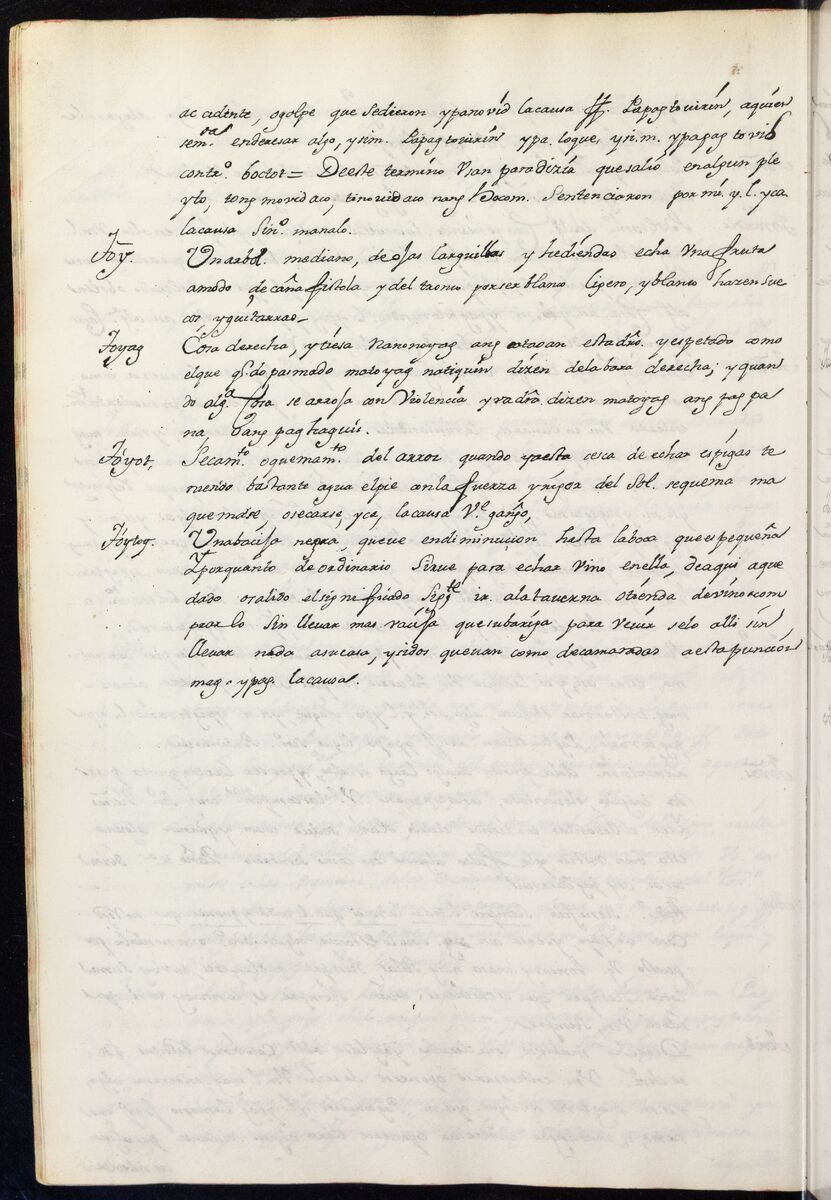 accadente, ogolpe que sedieron ypanovid lacausa ff. Papagtovirin, aquien
sem.da enderesar algo, ysim. Papagtovirin ypa. loque, yn.m. ypapagtovid
contr.o boctot = Deeste termino Vsan paradizir quesalio enalgun ple
yto, tongmovidaco, tinovidaco nang Docom. Sentenciaron por mi. y. l. yca
lacausa Sin.o manalo.
Toy. Vnarbol mediano, deojas larguillas y hediendas echa Vna fruta
amodo decaña fistola ydel tronco porser blanco ligero, yblanco hazensue
cos, yguitarras.
Toyag Cosa derecha, ytiesa Nanonoyag ang cataoan estadro. yespetado como
elque qdo pasmado matoyag natiquin dizen delabara derecha; yquan
do alg.a Cosa se arroja con Violencia yvadra. dizen matoyag ang pag pa
na, l. ang paghaguis.
Toyot, Secam.to oquemam.to del arroz quando yaesta cerca de echar espigas te
niendo bastante agua elpie conla fuerza yrigor del Sol. sequema ma
quemarse osecarse, yca, lacausa V.e gango,
Toytog. Vnabasija negra, queve endiminucion hasta laboca que es pequeña
Yporquanto deordinario Sirue para echar Vino enella, deaqui aque
dado osalido elsignificado Sig.te ir. alataverna otienda devino acom
prarlo Sin llevar mas vasija quesubariga para veuir selo alli sin
llevar nada asucasa, ysidos quevan como decamaradas aestafuncion
mag. ypag. lacausa.